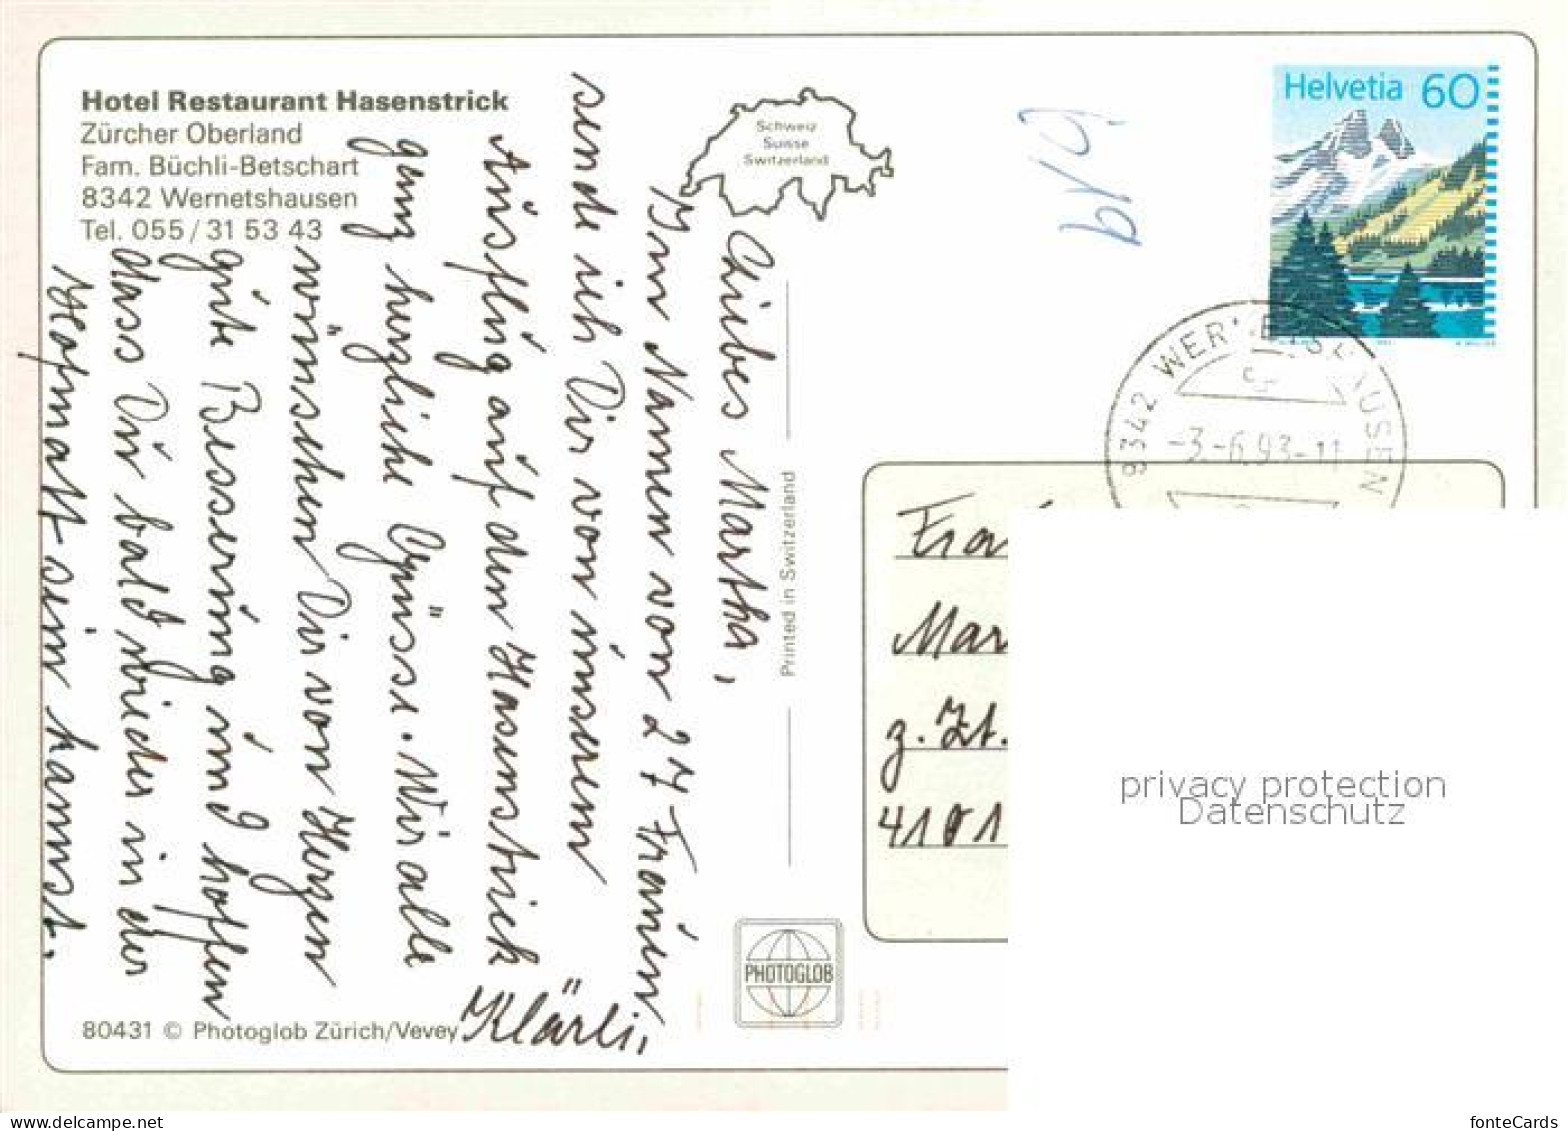 Hotel Restaurant Hasenstrick
Zürcher Oberland
Fam. Büchli-Betschart
8342 Wernetshausen
Tel. 055/31 53 43
Schweiz
Suisse
Switzerland
Helvetia 60
8342 WER
USEN
-3.-6.93-11
Liebes Martha,
Im Namen von 27 Frauen
sende ich Dir von unserem
Ausflug auf den Hasenstrick
ganz herzliche Grüsse. Wir alle
wünschen Dir von Herzen
gute Besserung und hoffen
dass Du bald wieder in der
Heimat sein kannst.
Klärli
Printed in Switzerland
PHOTOGLOB
80431 © Photoglob Zürich/Vevey
Frau
Mar
z. Zt.
4101
privacy protection
Datenschutz
fonteCards
www.delcampe.net